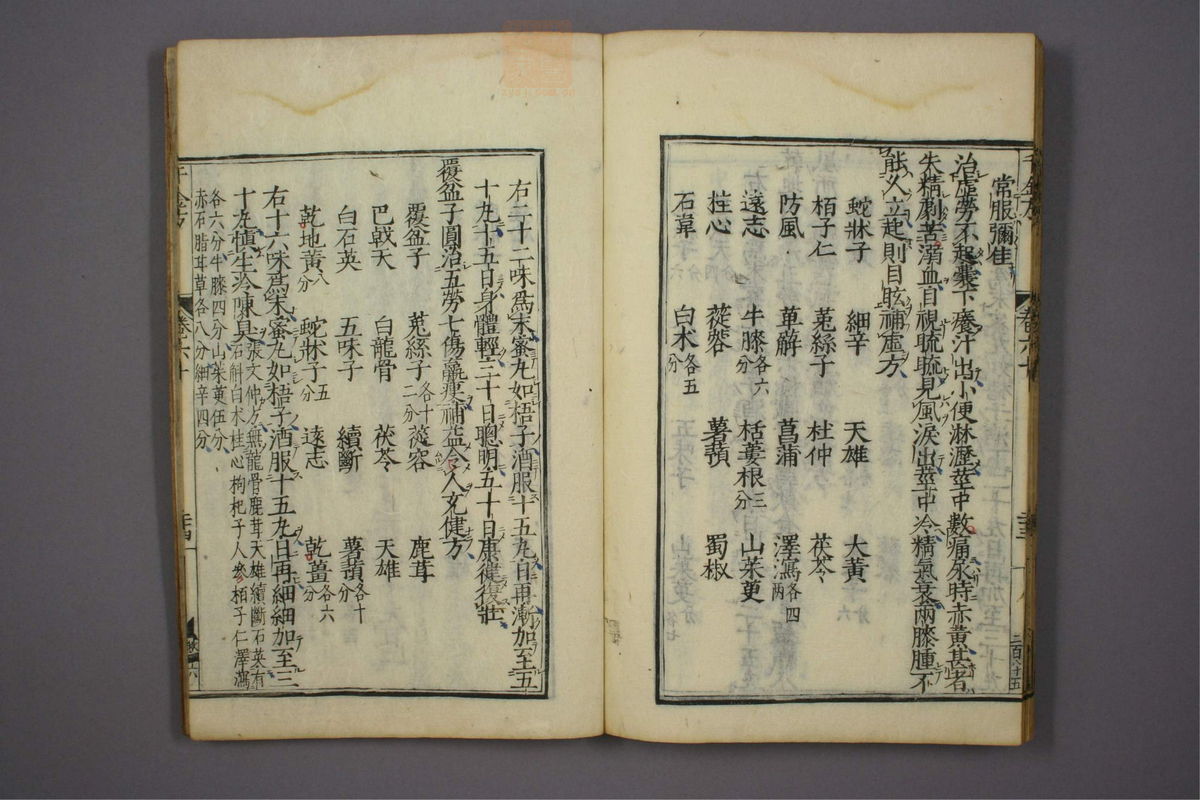 常服彌佳
治虛勞不起囊下癢汁出小便淋瀝莖中數痛尿時赤黃甚者
失精劇苦溺血自視䀮䀮見風淚出莖中冷精氣衰兩膝腫不
能久立起則目眩補虛方
蛇牀子 細辛 天雄 大黃
栢子仁 菟絲子 杜仲 茯苓
防風 萆薢 菖蒲 澤瀉各四兩
遠志 牛膝各六分 栝蔞根三分 山茱萸
桂心 蓯蓉 薯蕷 蜀椒
石韋 白朮各五分
右二十二味爲末蜜丸如梧子酒服十五丸日再漸加至五
十丸十五日身體輕三十日聰明五十日康健復壯
覆盆子圓治五勞七傷羸瘦補益令人充健方
覆盆子 菟絲子各十二分 蓯容 鹿茸
巴戟天 白龍骨 茯苓 天雄
白石英 五味子 續斷 薯蕷各十分
乾地黃八分 蛇牀子五分 遠志 乾薑各六分
右十六味爲末蜜丸如梧子酒服十五丸日再細細加至三
十丸愼生冷陳臭張文仲方無龍骨鹿茸天雄續斷石英有
石斛白朮桂心枸杞子人參栢子仁澤瀉
各六分牛膝四分山茱萸伍分
赤石脂甘草各八分細辛四分
千金方
卷六十